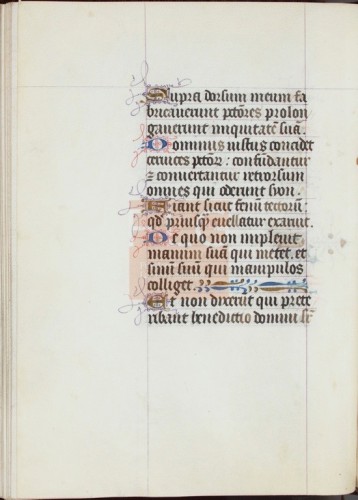 Supra dorsum meum fa
bricauerunt pctōres prolon
gauerunt iniquitatē suā.
Dominus iustus concidet
ceruices pctōr̄: confundantur
⁊ conuertantur retrorsum
omnes qui oderunt syon.
Fiant sicut fenū tectorū:
qd̄ priusq̄ euellatur exaruit.
De quo non impleuit
manum suā qui metet, et
sinū suū qui manipulos
colliget.
Et non dixerūt qui prete
ribant benedictio domini sr̄